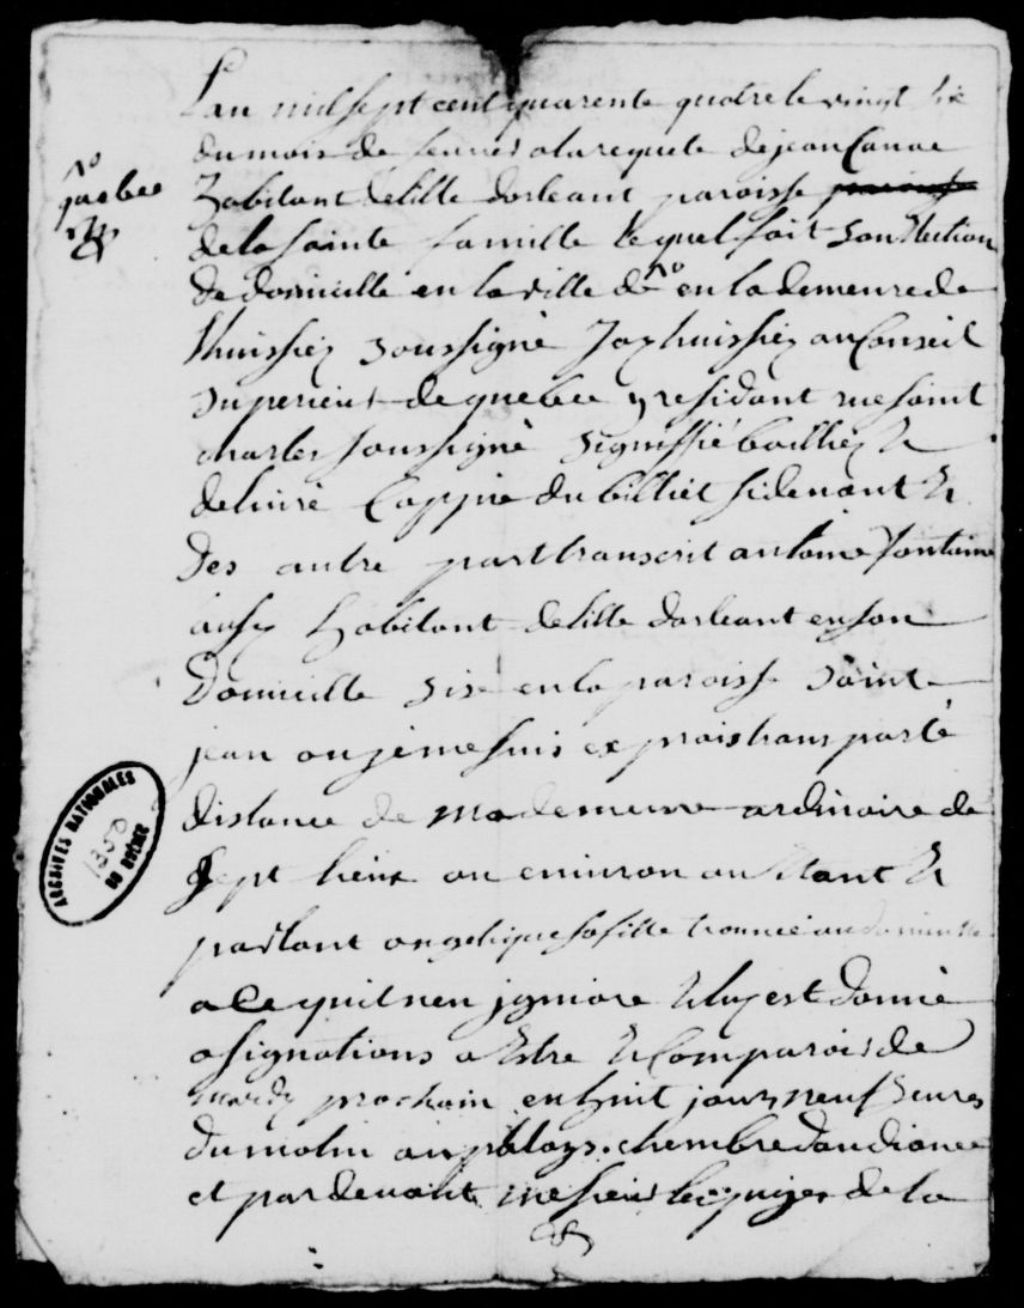 Lan mil sept cent quarente quatre le vingt six
du mois de feuried a la requete de jean Canac
habitant de lille dorleant paroisse paroisse
de la sainte famille lequel fait son Election
de domicille en la ville de no en la demeure de
no
quebec
lhuissiez soussigné Jay huissiez au Conseil
superieur de quebec y residant rue saint
charles soussigné signiffié bailliez Et
deliuré Coppie du billiet sidenant Et
des autre part transcrit antoine fontaine
ausy habitant de lille dorleant en son
Domicille sise en la paroisse saint
jean ou je me suis exprais transporté
distance de ma demeure ordinaire de
sept lieux ou enuiron ou Etant Et
parlant angelique sa fille trouueé au domicille
a Ce quil nen jgniore Et luy est donné
asignations a Estre Et Comparoir de
mardy prochain en huit jours neuf heures
du matin au palays chembre daudiance
et par deuant messieurs les juges de la
ARCHIVES NATIONALES
1350
DU QUÉBEC